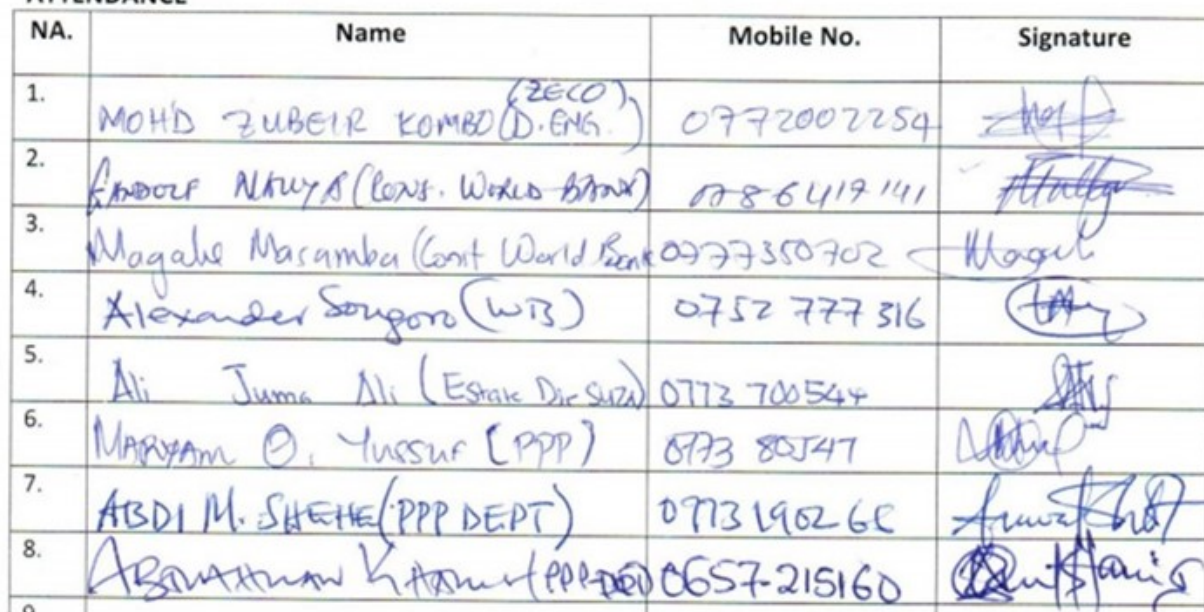 ATTENDANCE
NA. Name Mobile No. Signature
1. MOHD ZUBEIR KOMBO (ZECO) (D.ENG.) 0772002254
2. (CONS. WORLD BANK) 0786419141
3. Magahe Masamba (Const World Bank 0777350702 Magah
4. Alexander Songoro (WB) 0752 777 316
5. Ali Juma Ali (Estate Dir SUZA) 0773 700544
6. MARYAM O. Yussuf [PPP) 0773 80547
7. ABDI M. SHEHE (PPP DEPT)
8. (PPP 0657-215160